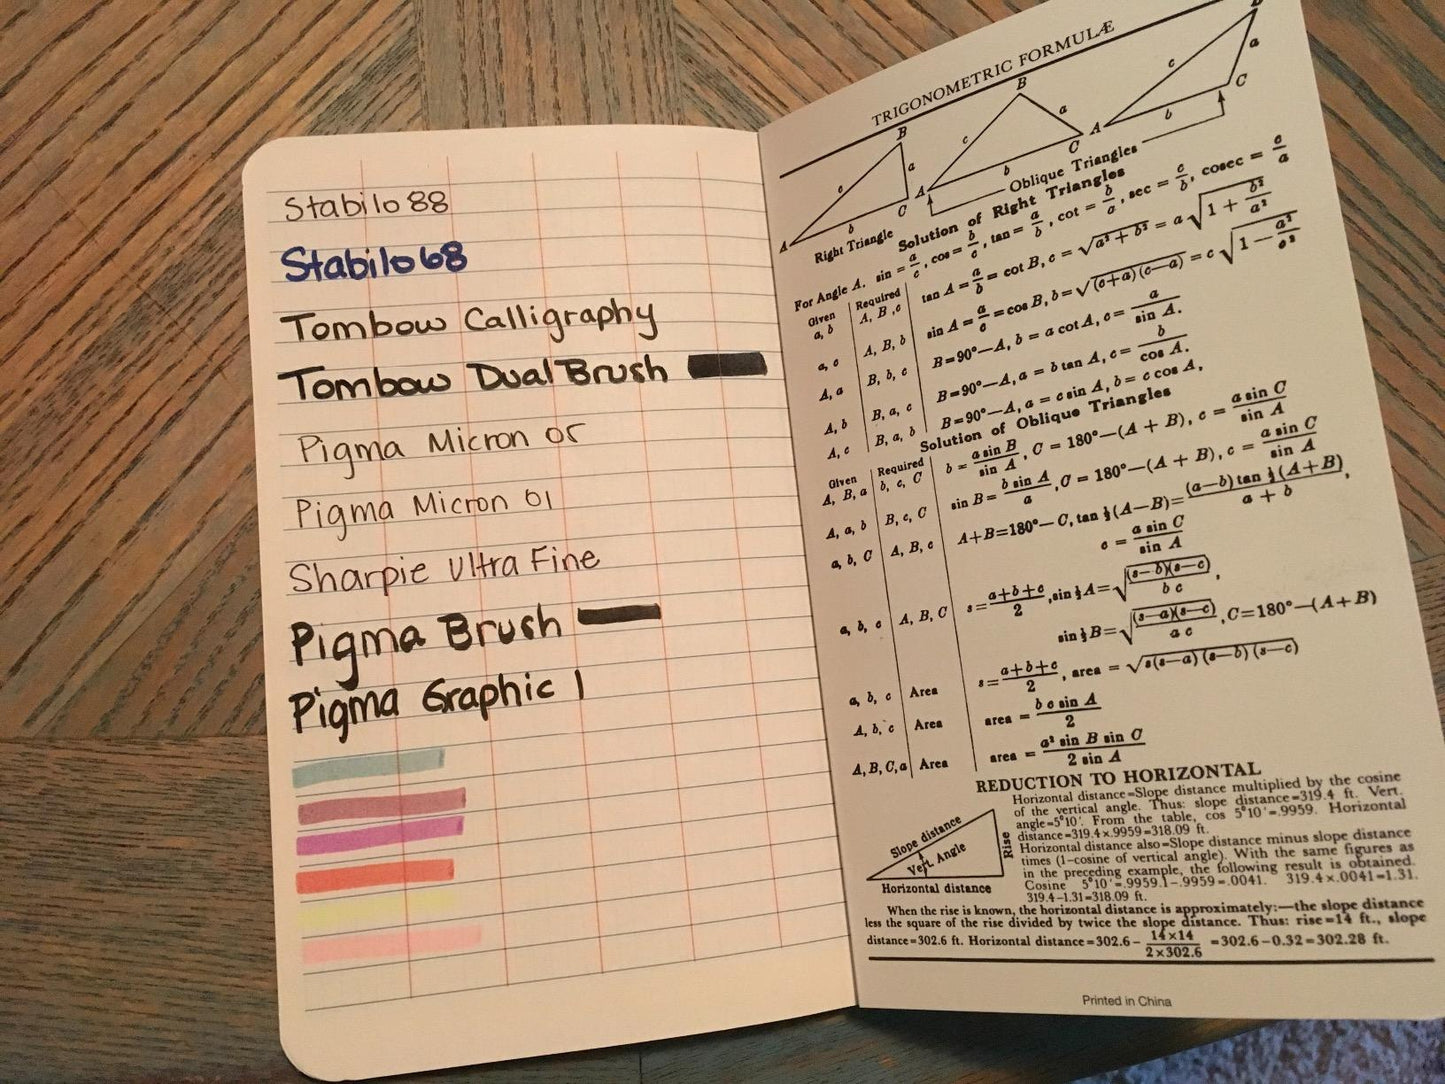 Stabilo 88
Stabilo 68
Tombow Calligraphy
Tombow Dual Brush
Pigma Micron 05
Pigma Micron 01
Sharpie Ultra Fine
Pigma Brush
Pigma Graphic 1
TRIGONOMETRIC FORMULÆ
B
c a
A b C
Right Triangle
B
c a
A b C
Oblique Triangles
c a
A b C
Solution of Right Triangles
For Angle A. sin = a/c, cos = b/c, tan = a/b, cot = b/a, sec = c/b, cosec = c/a
Given Required
a, b A, B, c tan A = a/b = cot B, c = √(a² + b²) = a √(1 + b²/a²)
a, c A, B, b sin A = a/c = cos B, b = √((c+a)(c—a)) = c √(1 — a²/c²)
A, a B, b, c B=90°—A, b = a cot A, c = a/sin A.
A, b B, a, c B=90°—A, a = b tan A, c = b/cos A.
A, c B, a, b B=90°—A, a = c sin A, b = c cos A,
Solution of Oblique Triangles
Given Required
A, B, a b, c, C b = a sin B/sin A, C = 180°—(A + B), c = a sin C/sin A
A, a, b B, c, C sin B = b sin A/a, C = 180°—(A + B), c = a sin C/sin A
a, b, C A, B, c A+B=180°—C, tan ½(A—B)= (a—b) tan ½(A+B)/a + b,
c = a sin C/sin A
a, b, c A, B, C s = a+b+c/2, sin ½A = √((s—b)(s—c)/b c),
sin ½B = √((s—a)(s—c)/a c), C=180°—(A+B)
a, b, c Area s = a+b+c/2, area = √(s(s—a)(s—b)(s—c))
A, b, c Area area = b c sin A/2
A, B, C, a Area area = a² sin B sin C/2 sin A
REDUCTION TO HORIZONTAL
Slope distance
Vert. Angle
Rise
Horizontal distance
Horizontal distance=Slope distance multiplied by the cosine
of the vertical angle. Thus: slope distance=319.4 ft. Vert.
angle=5°10'. From the table, cos 5°10'=.9959. Horizontal
distance=319.4×.9959=318.09 ft.
Horizontal distance also=Slope distance minus slope distance
times (1—cosine of vertical angle). With the same figures as
in the preceding example, the following result is obtained.
Cosine 5°10'=.9959.1—.9959=.0041. 319.4×.0041=1.31.
319.4—1.31=318.09 ft.
When the rise is known, the horizontal distance is approximately:—the slope distance
less the square of the rise divided by twice the slope distance. Thus: rise=14 ft., slope
distance=302.6 ft. Horizontal distance=302.6— 14×14/2×302.6 =302.6—0.32=302.28 ft.
Printed in China